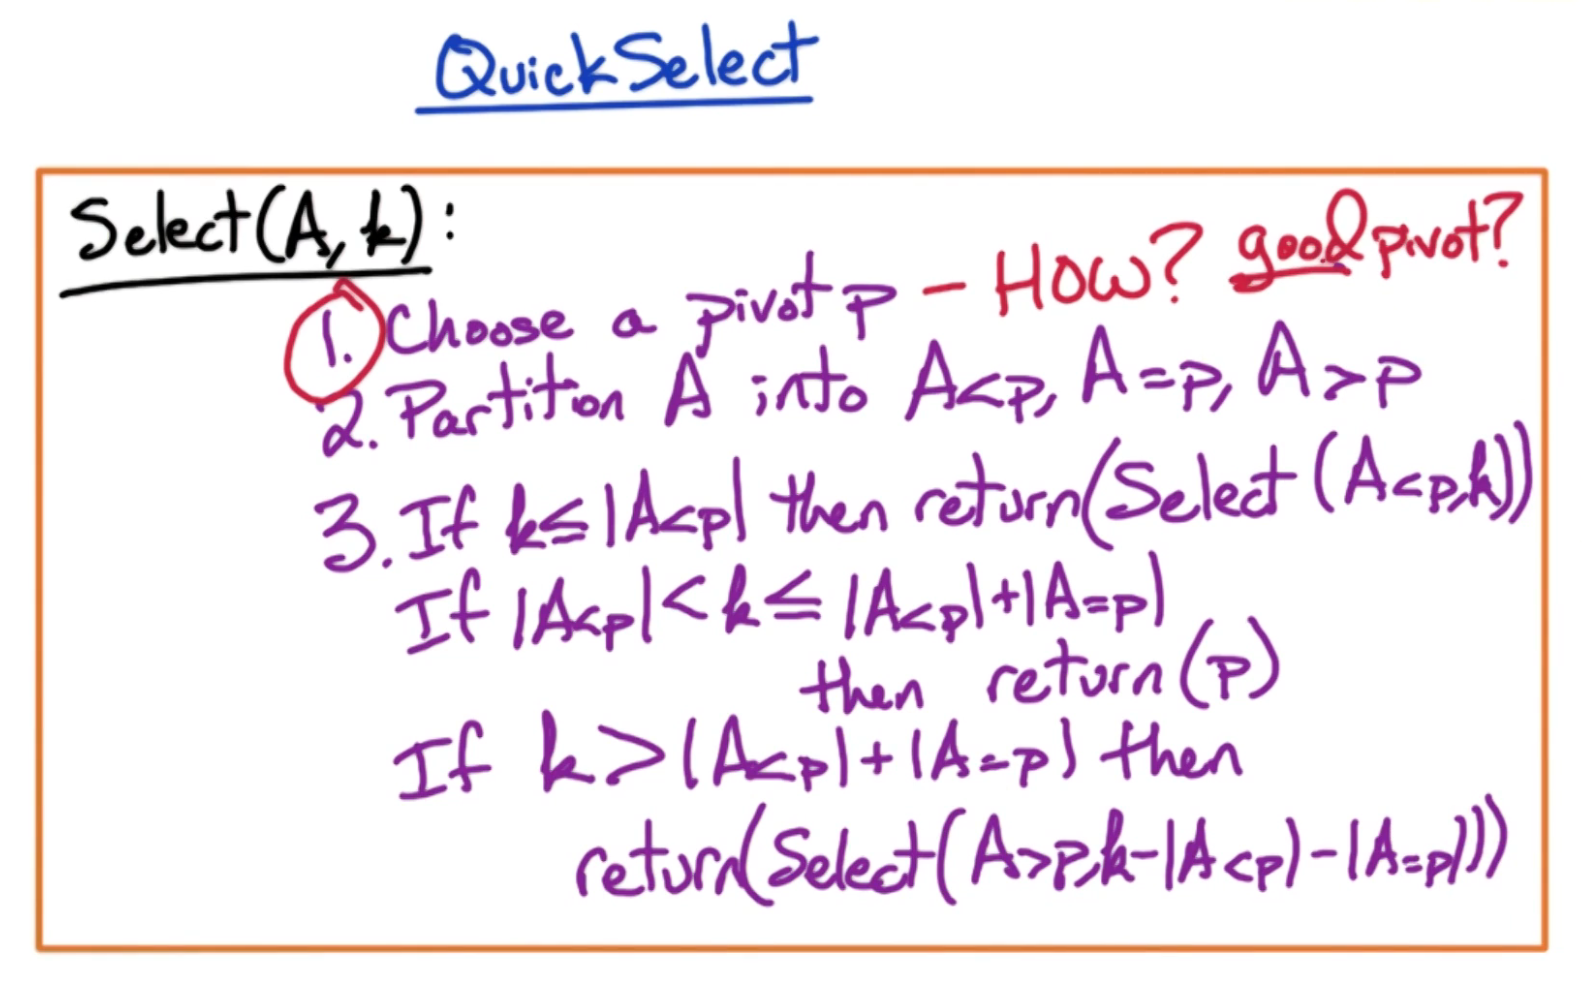 QuickSelect
Select(A, k):
1. Choose a pivot p - How? good pivot?
2. Partition A into A<p, A=p, A>p
3. If k≤|A<p| then return(Select(A<p,k))
If |A<p|<k≤|A<p|+|A=p|
then return(p)
If k>|A<p|+|A=p| then
return(Select(A>p,k-|A<p|-|A=p|))